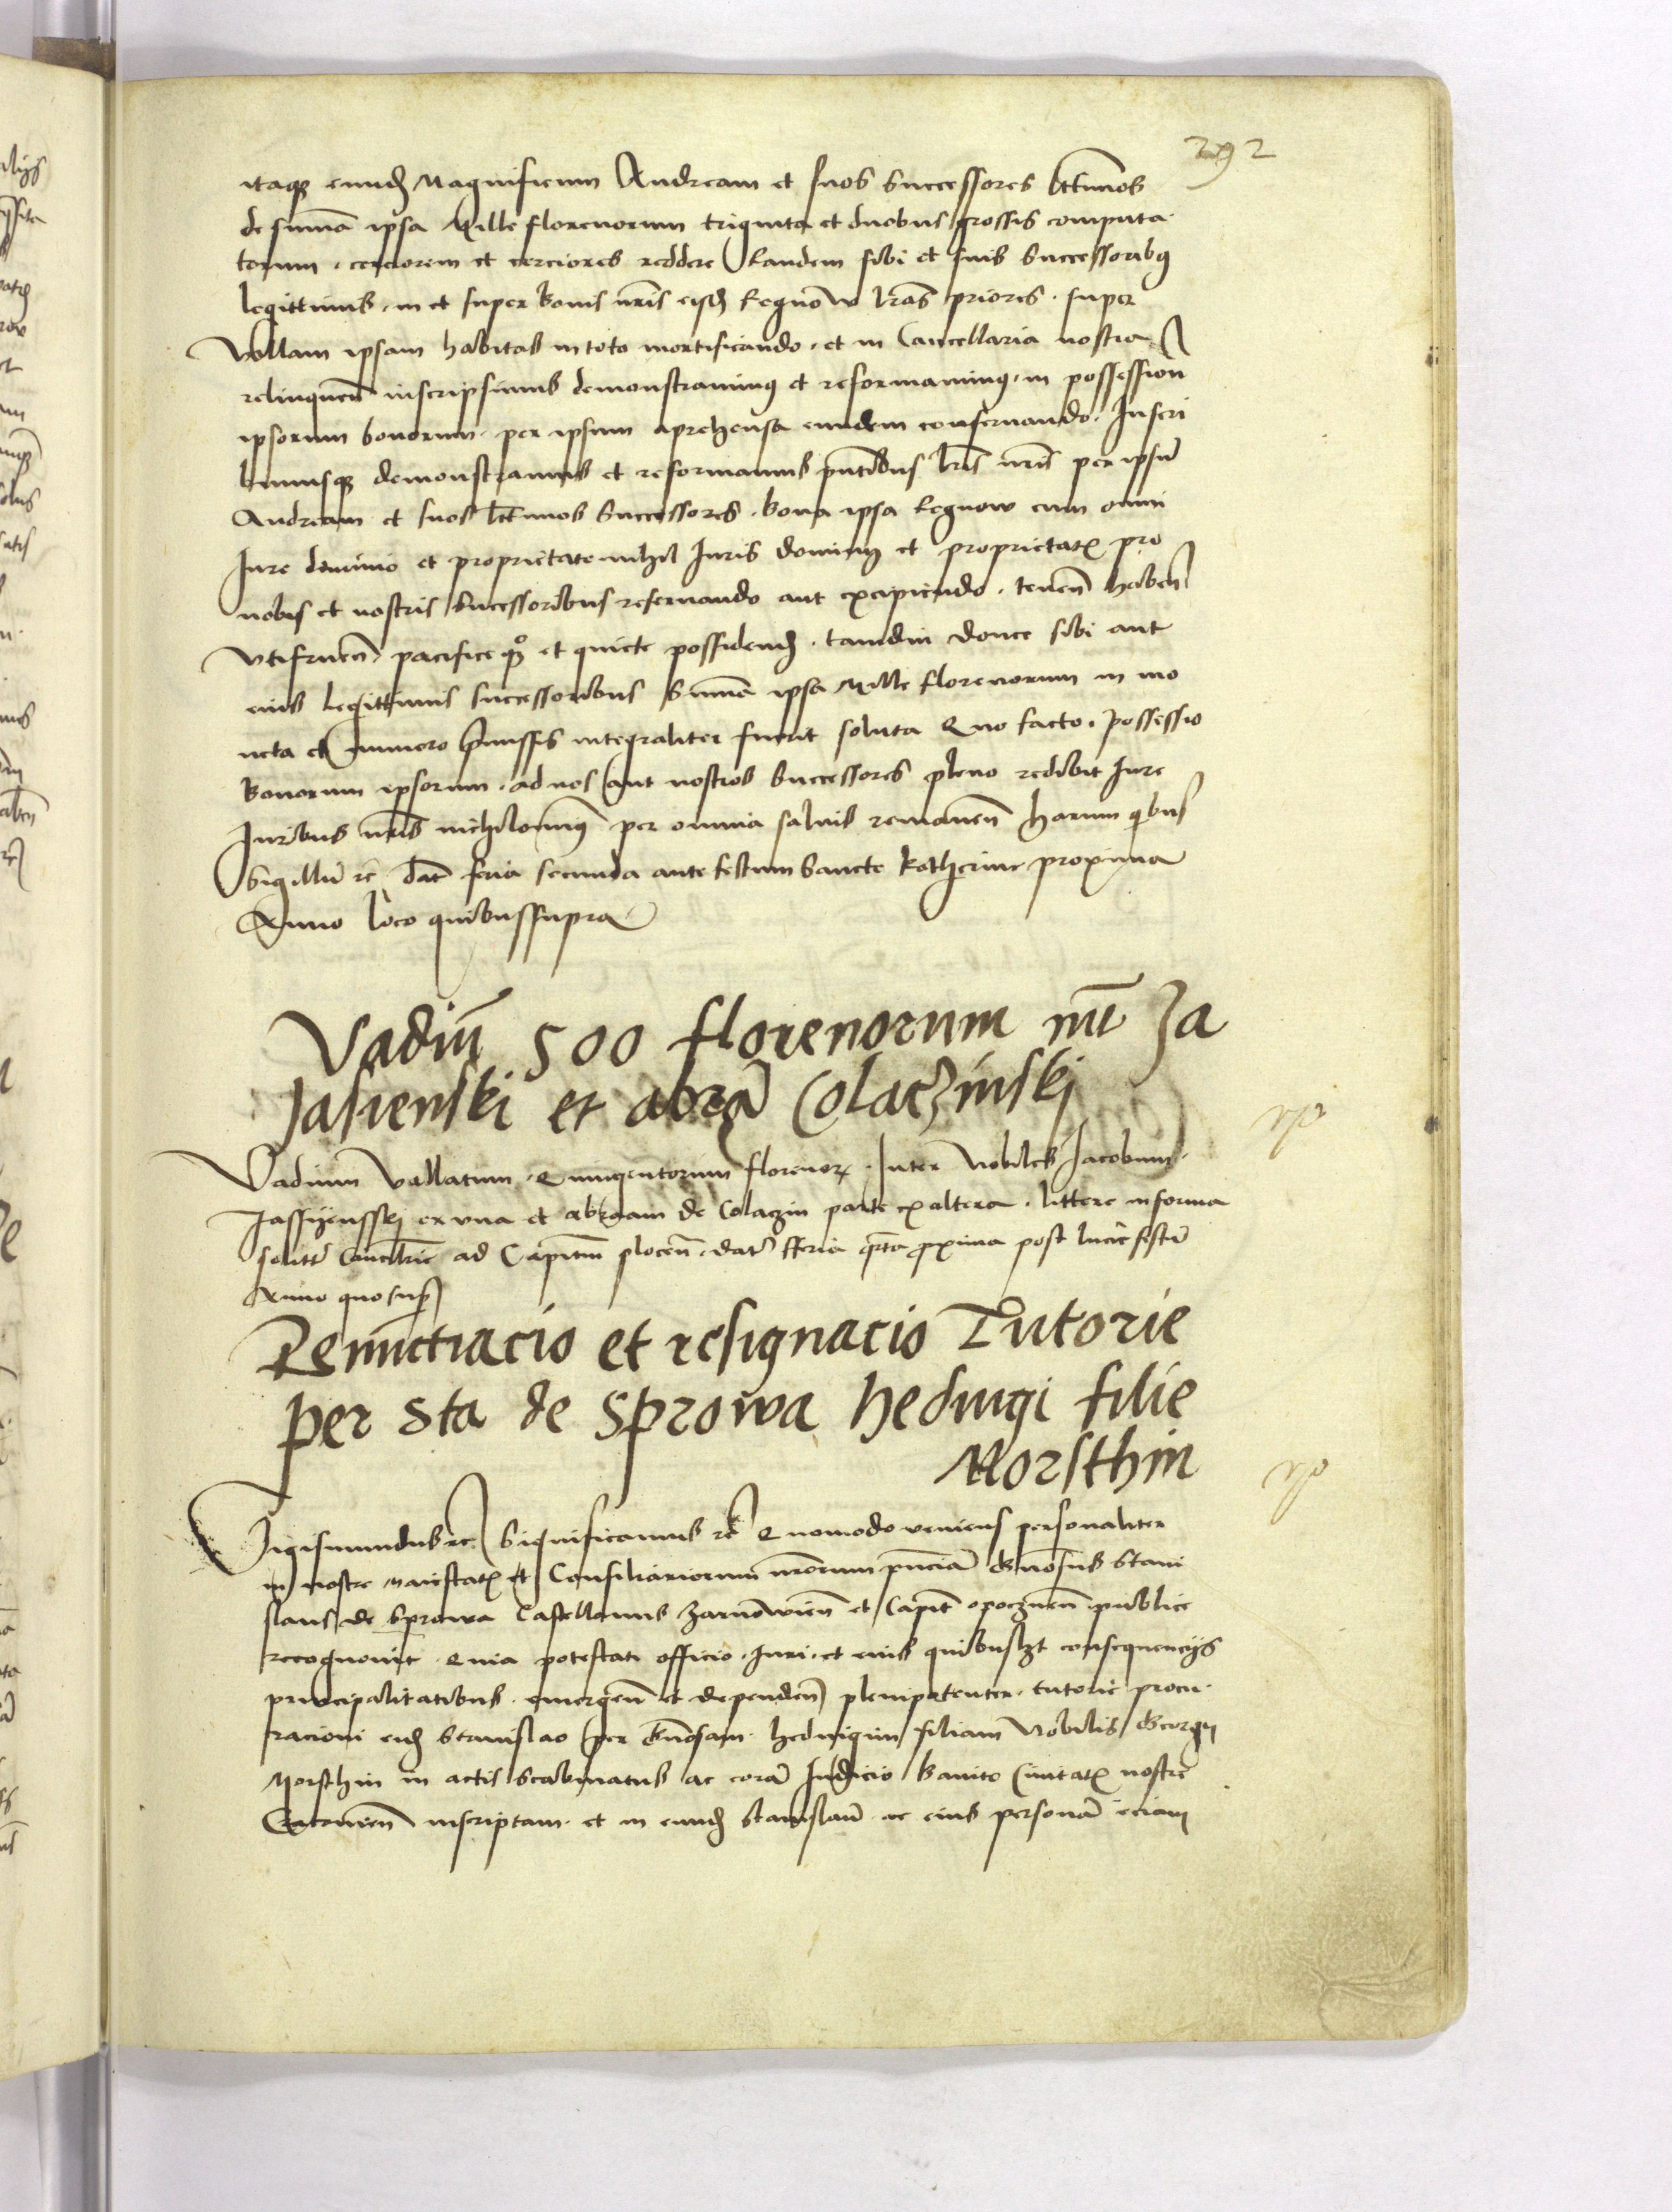 292
itaque eundem Magnificum Andream et suos Successores l̅ttimos
de summa ipsa Mille florenorum triginta et duobus grossis computa-
torum cerciorem et cerciores reddere Eandem sibi et suis Successoribus
legittimis in et super bonis nr̅is eisdem Regnow lr̅as priores super
Vollam ipsam habitas in toto mortificando et in Cancellaria nostra
relinquen̅ inscripsimus demonstramus et reformamus in possession
ipsorum bonorum per ipsum aprehensa eundem conservando Inscri
bimusque demonstramus et reformamus pn̅tibus lr̅is nr̅is per ipsum
Andream et suos l̅ttimos Successores bona ipsa Regnow cum omni
Iure dominio et proprietate nihil Iuris dominii et proprietatis pro
nobis et nostris Successoribus reservando aut excipiendo tenen̅ haben̅
utifruen̅ pacifice quoque et quiete possidend tamdiu donec sibi aut
eius legittimis successoribus Summa ipsa Mille florenorum in mo
neta et numero premissis integraliter fuerit soluta Quo facto possessio
bonorum ipsorum ad nos aut nostros Successores pleno redibit Iure
Iuribus nr̅is nichilominus per omnia salvis remanen̅ Harum quibus
Sigillum etc dat̅ feria secunda ante festum Sancte Katherine proxima
Anno loco quibus supra
Vadiu̅ 500 florenorum int̅ Ja
Jasienski et abra̅ Colaczinskj
Vadium Vallatum Quingentorum florenorum Inter Nobiles Jacobum
Jassyensskj ex una et abraam de Colaczin parte ex altera littere in forma
solite Cancell̅rie ad Capitm̅ plocen̅ dat̅ fferia qr̅ta proxima post lucie festum
Anno quo supra
Renunctiacio et resignacio Tutorie
per Sta de Sprowa hedvigi filie
Morsthin
Sigismundus etc Significamus etc Quomodo veniens personaliter
in nostre maiestatis et Consiliariorum nr̅orum pn̅cia̅ Gn̅osus Stani
slaus de Sprowa Castellanus Zarnowien̅ et Capit̅ opoczinen̅ publice
recognovit Quia potestati officio Iuri et eius quibuslibet consequenciis
principalitatibus emergen̅ et dependen̅ plenipotenter tutorie procu
racioni eidem Stanislao per Gn̅osam hedvigim filiam Nobilis Georgii
Morsthin in actis Scabinatus ac coram Iudicio banito Civitatis nostre
Cracovien̅ inscriptam et in eundem Stanislaum ac eius persona̅ eciam